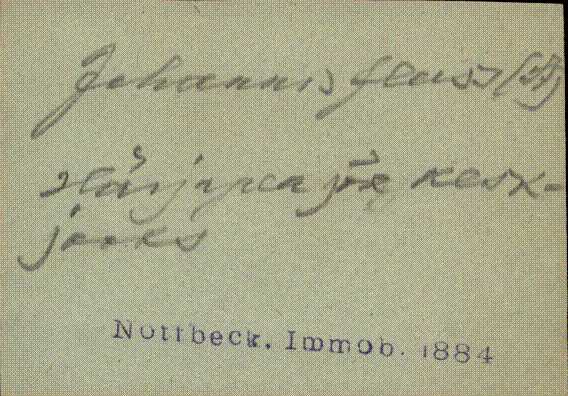 Johannis fluss (St)
Härjapea jõe kesk-
jooks
Nottbeck. Immob. 1884